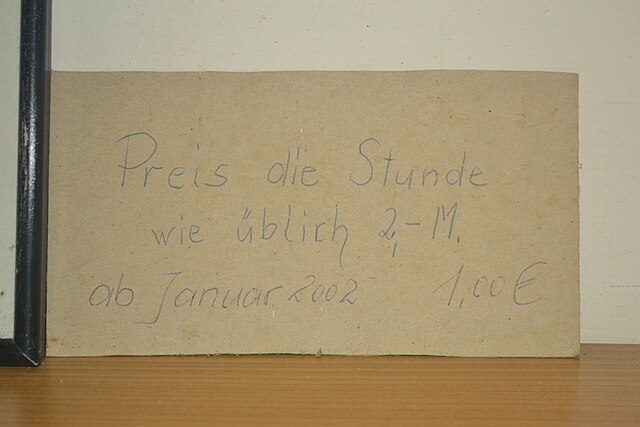 Preis die Stunde
wie üblich 2,- M.
ab Januar 2002 1,00 €